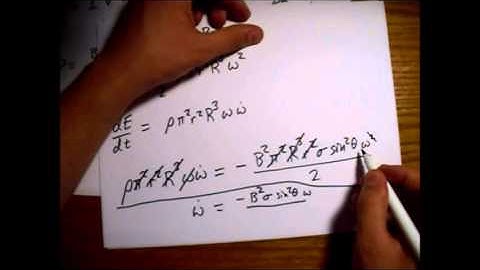 R³ω²
dE/dt = ρπ²r²R³ωω̇
ρπ²r²R³ωω̇ = - B²π²R³r²σ sin²θ ω² / 2
ω̇ = - B²σ sin²θ ω